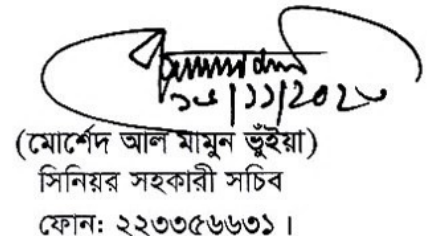 (মোর্শেদ আল মামুন ভুঁইয়া)
সিনিয়র সহকারী সচিব
ফোন: ২২৩৩৫৬৬৩১।